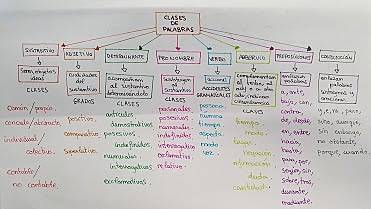 CLASES
DE
PALABRAS
SUSTANTIVO
ADJETIVO
DETERMINANTE
PRONOMBRE
VERBO
ADVERBIO
PREPOSICIONES
CONJUNCIÓN
ideas
cualidades
del
sustantivo
acompañan
al sustantivo
determinándolo
sustituyen
al
sustantivo
acciones
complementan
al verbo, al
enlazan
palabras
enlazan
palabras
CLASES
GRADOS
CLASES
CLASES
ACCIDENTES
GRAMATICALES
CLASES
común / propio
concreto / abstracto
individual /
colectivo
contable /
no contable
positivo
comparativo
superlativo
artículos
demostrativos
posesivos
indefinidos
numerales
interrogativos
exclamativos
personales
posesivos
numerales
indefinidos
interrogativos
relativo
persona
número
tiempo
aspecto
modo
voz
tiempo
modo
lugar
negación
afirmación
duda
cantidad
a, ante,
bajo, con,
contra,
de, desde,
en, entre,
hacia,
hasta,
para, por,
según, sin,
sobre, tras,
durante,
mediante
sino, aunque,
sin embargo,
no obstante,
porque, cuando